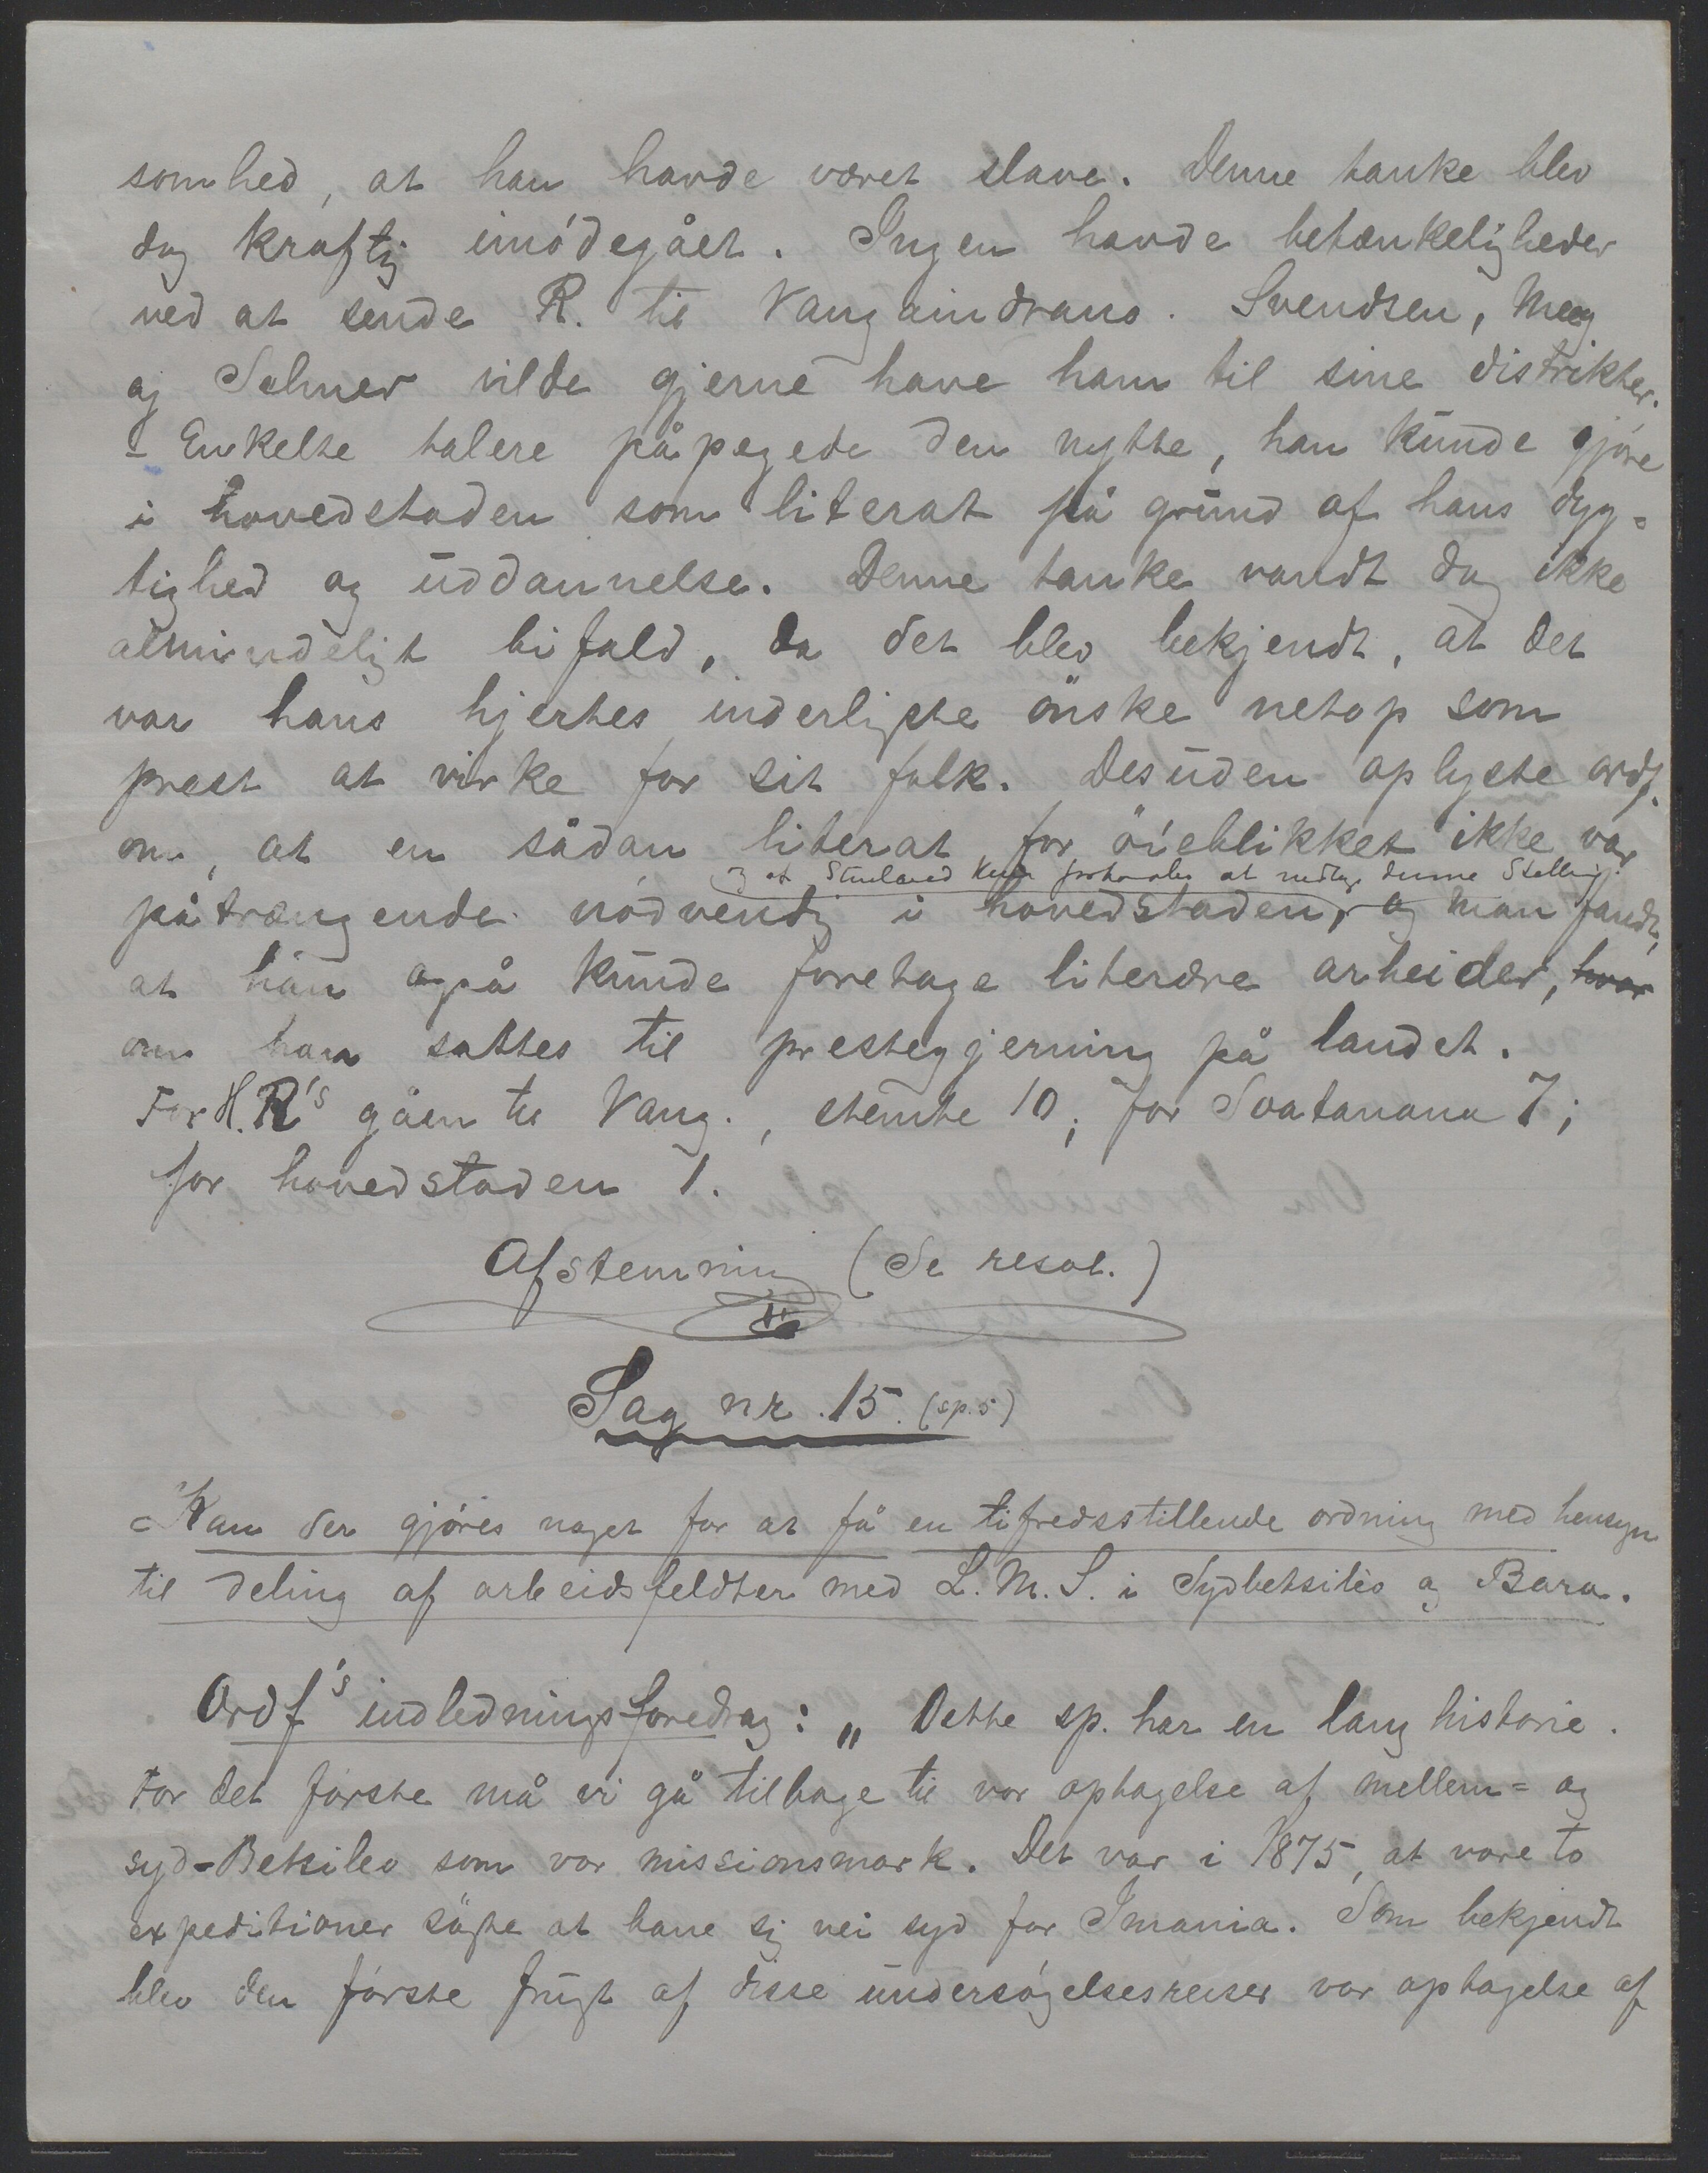 somhed, at han havde været slave. Denne tanke blev
dog kraftig imødegået. Ingen havde betænkeligheder
ved at sende R. til Vangaindrano. Svendsen, Meeg
og Selmer vilde gjerne have ham til sine distrikter.
– Enkelte talere påpegede den nytte, han kunde gjøre
i hovedstaden som literat på grund af hans dyg=
tighed og uddannelse. Denne tanke vandt dog ikke
almindeligt bifald, da det blev bekjendt, at det
var hans hjertes inderligste ønske netop som
prest at virke for sit folk. Desuden oplyste ordf.
om, at en sådan literat for øieblikket ikke var
og at nedlægge denne Stilling
påtrængende nødvendig i hovedstaden, og man fandt,
at han også kunde foretage literære arbeider, hvor
om han sattes til prestegjerning på landet.
For H. R's gåen til Vang., stemte 10; for Soatanana 7;
for hovedstaden 1.
Afstemning (Se resol.)
Sag nr. 15. (sp. 5)
Kan der gjøres noget for at få en tilfredsstillende ordning med hensyn
til deling af arbeidsfeldter med L. M. S. i Sydbetsileo og Bara.
Ordf's indledningsforedrag: „Dette sp. har en lang historie.
For det første må vi gå tilbage til vor optagelse af mellem= og
syd=Betsileo som vor missionsmark. Det var i 1875, at vore to
expeditioner søgte at bane sig vei syd for Imania. Som bekjendt
blev den første frugt af disse undersøgelsesreiser vor optagelse af